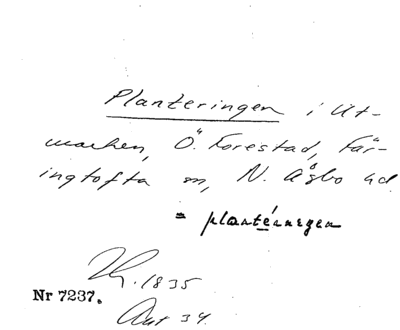 Planteringen i Ut-
marken, Ö. Forestad, Fär-
ingtofta sn, N. Åsbo hd
= plantéringen
1835
Nr 7237.
34.